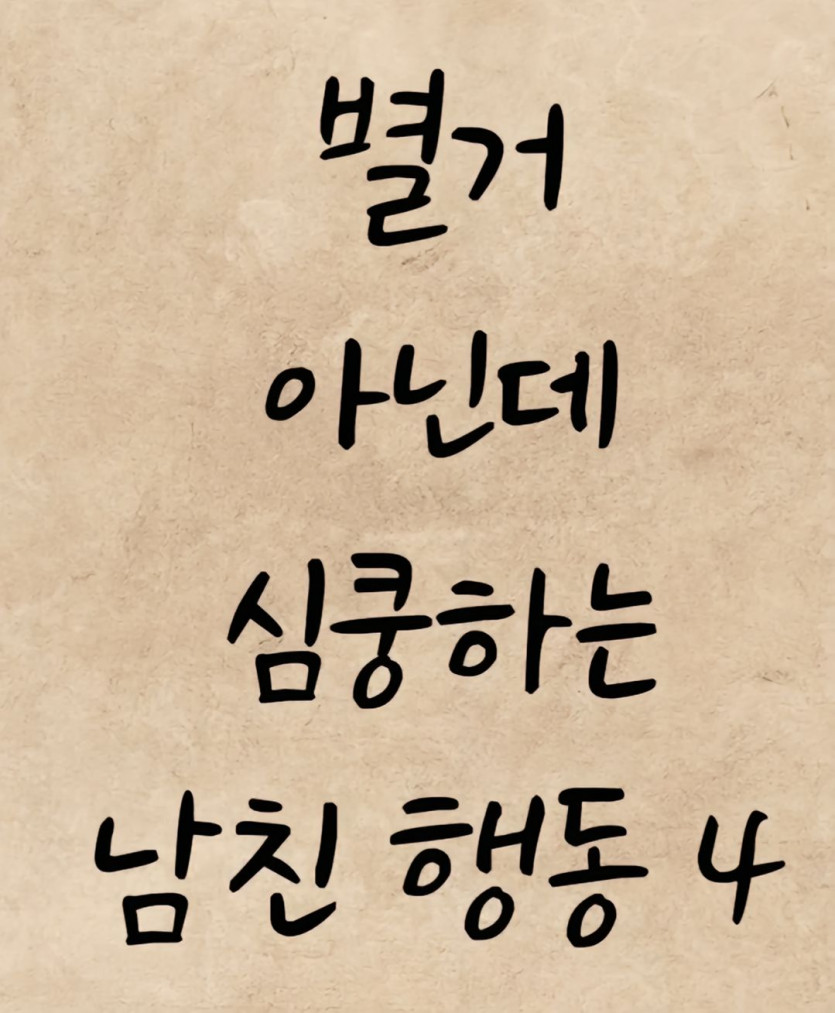 별거
아닌데
심쿵하는
남친 행동 4